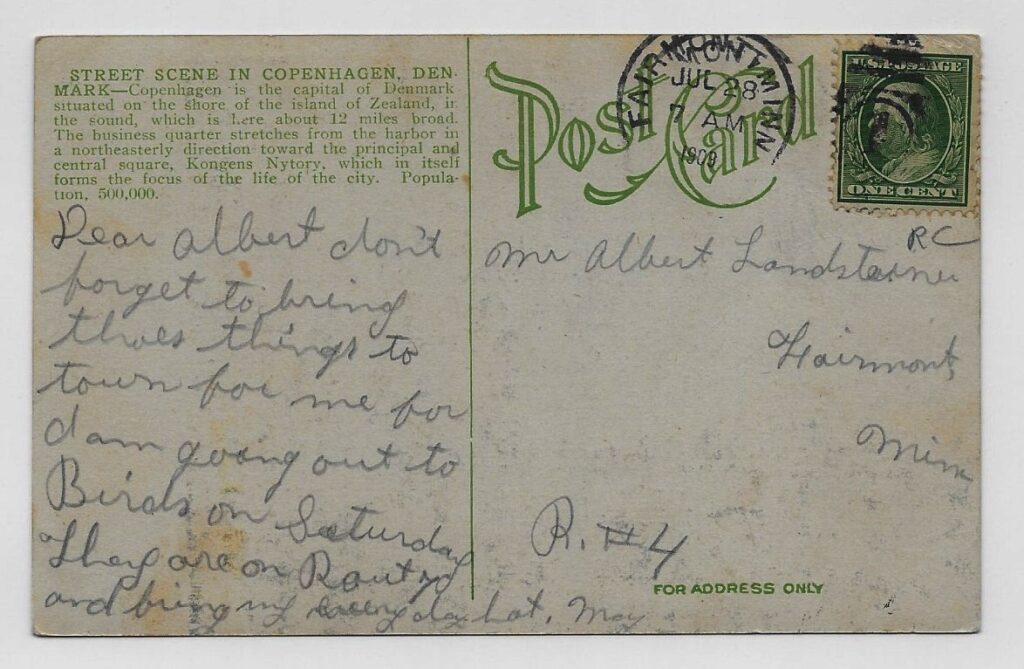 STREET SCENE IN COPENHAGEN, DEN-
MARK—Copenhagen is the capital of Denmark
situated on the shore of the island of Zealand, in
the sound, which is here about 12 miles broad.
The business quarter stretches from the harbor in
a northeasterly direction toward the principal and
central square, Kongens Nytory, which in itself
forms the focus of the life of the city. Popula-
tion, 500,000.
Dear Albert don't
forget to bring
thoes things to
town for me for
I am going out to
Birds on Saturday
They are on Rout
and bring my every day hat, May
Post Card
FAIRMONT MINN
JUL 28
7 AM
1909
U.S. POSTAGE
ONE CENT
RC
Mr Albert
Fairmont
Minn
R. #4
FOR ADDRESS ONLY